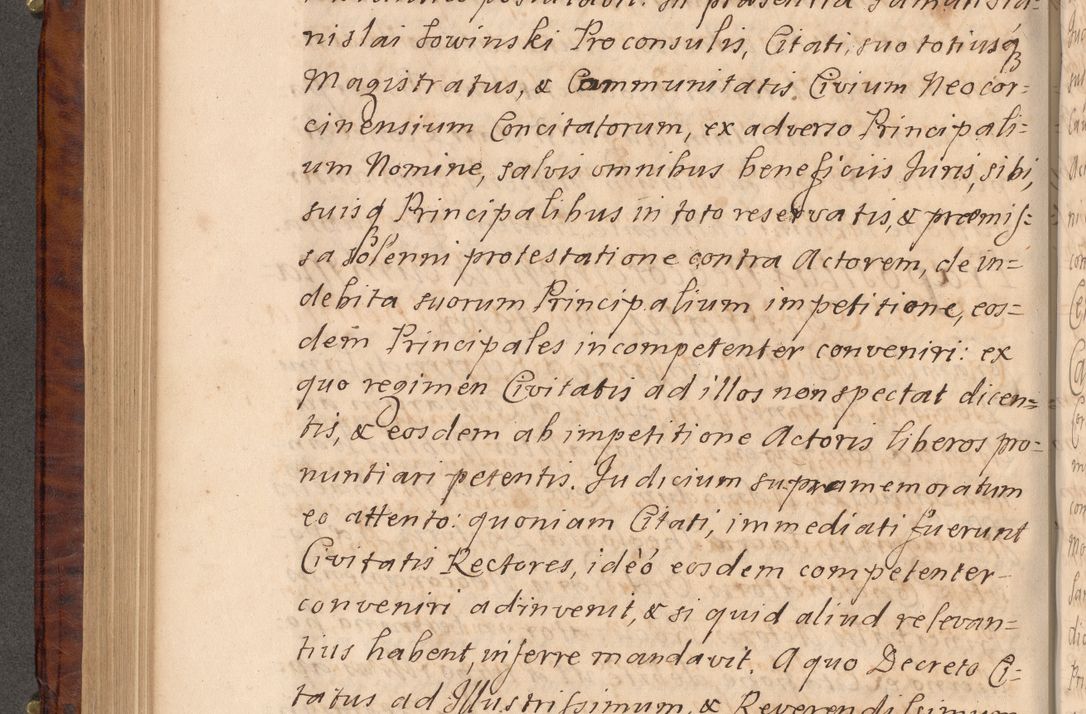 nislai Sowinski Proconsulis, Citati, suo totiusq́
Magistratus, & Communitatis Civium Neocor=
cinensium Concitatorum, ex adverso Principali=
um Nomine, salvis omnibus beneficiis Iuris, sibi,
suisq́ Principalibus in toto reservatis, & præmis=
sa solenni protestatione contra Actorem, de in=
debita suorum Principalium impetitione, eos=
dem Principales incompetenter conveniri: ex
quo regimen Civitatis ad illos non spectat dicen=
tis, & eosdem ab impetitione Actoris liberos pro=
nuntiari petentis. Iudicium supramemoratum
eo attento: quoniam Citati, immediati fuerunt
Civitatis Rectores, ideò eosdem competenter
conveniri adinvenit, & si quid aliud relevan=
tius habent, inferre mandavit. A quo Decreto Ci=
tatus ad Illustrissimum, & Reverendissimum